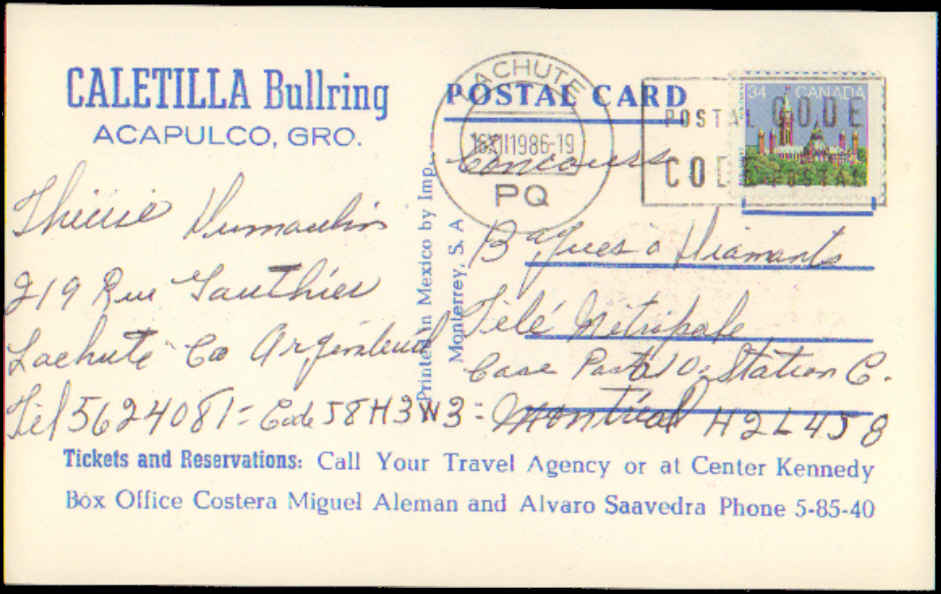 CALETILLA Bullring
ACAPULCO, GRO.
POSTAL CARD
LACHUTE
16 XII 1986-19
PQ
POSTAL CODE
CODE POSTAL
34 CANADA
Printed in Mexico by Imp.
Monterrey, S. A
219 Rue Gauthier
Lachute Co Argenteuil
Tél 5624081 = Code J8H3W3 =
Concours
Bagues à Diamants
Télé Métropole
Case Postal Station C.
Montréal H2L4J8
Tickets and Reservations: Call Your Travel Agency or at Center Kennedy
Box Office Costera Miguel Aleman and Alvaro Saavedra Phone 5-85-40